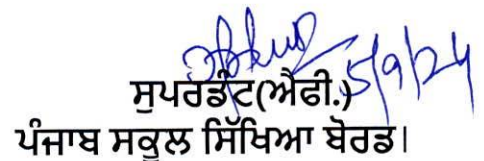 5/9/24
ਸੁਪਰਡੰਟ(ਐਫੀ.)
ਪੰਜਾਬ ਸਕੂਲ ਸਿੱਖਿਆ ਬੋਰਡ।